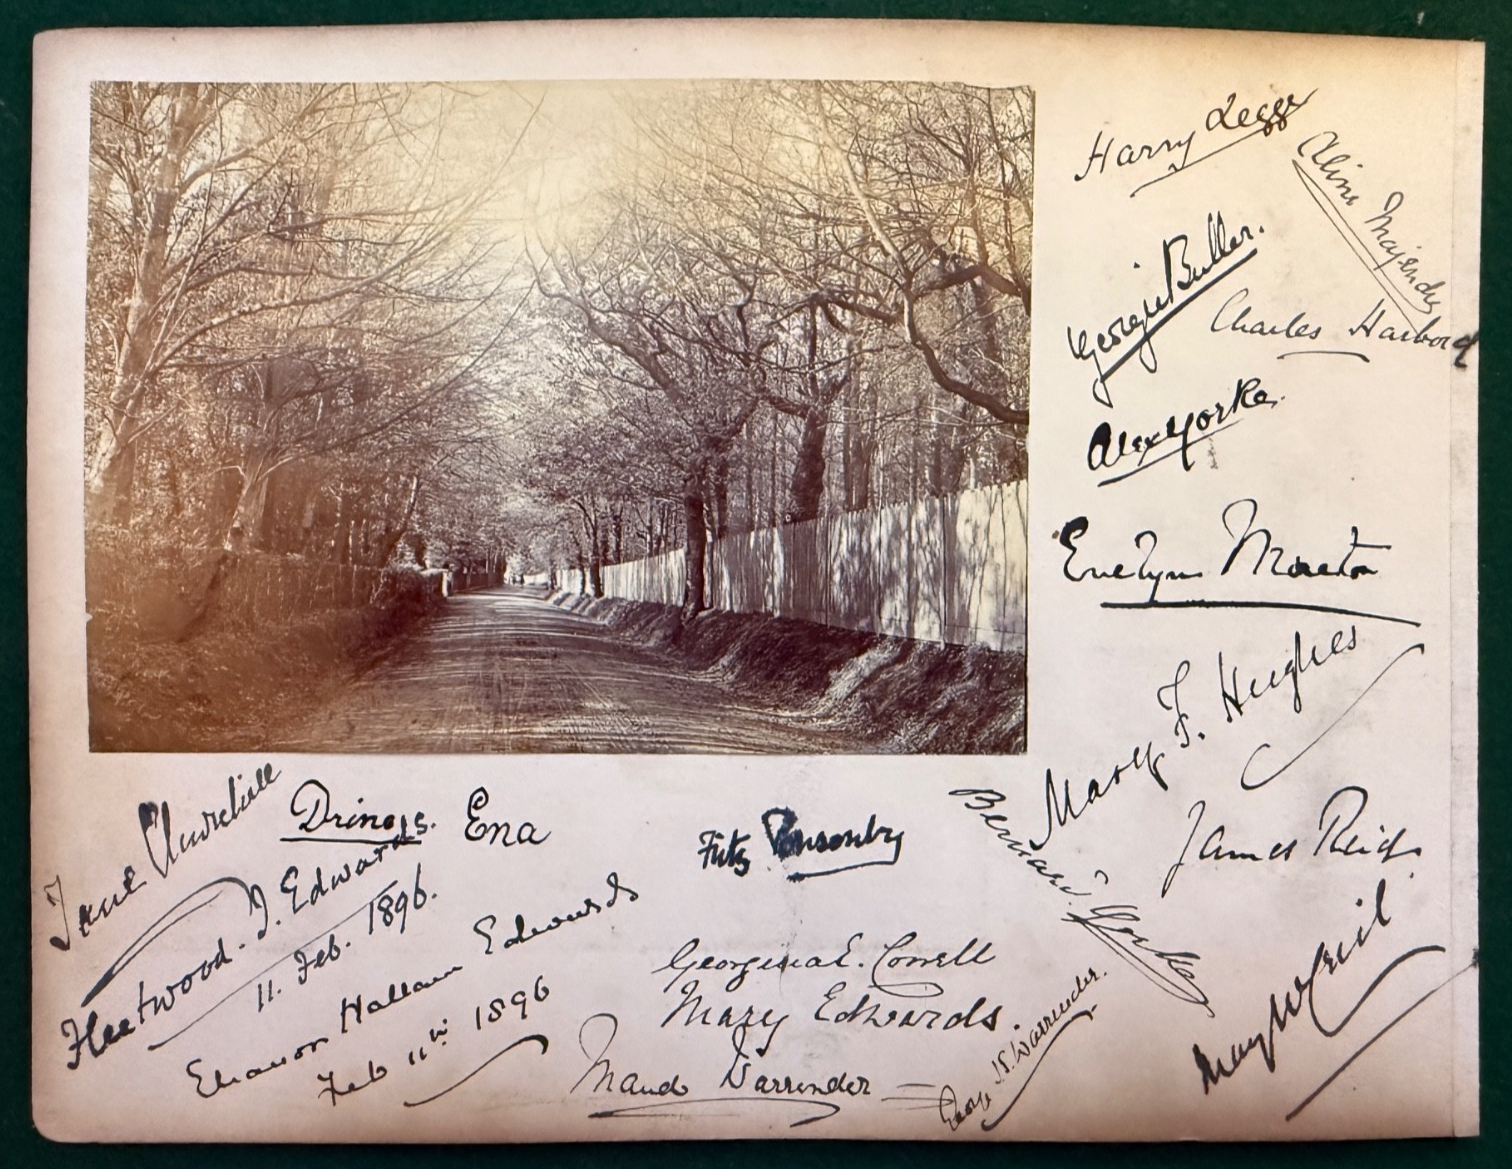 Harry Legge
Aline Majendie
Georgie Buller.
Charles Harbord
Alex Yorke.
Evelyn Moreton
Mary F. Hughes
James Reid.
Bernard Yorke
Jane Churchill
Drino
Ena
Fritz Ponsonby
Fleetwood. I. Edwards.
11. Feb. 1896.
Eleanor Hallam Edwards
Feb 11th 1896
Georgina E. Cowell
Mary Edwards.
Maud Warrender
George J.S. Warrender.